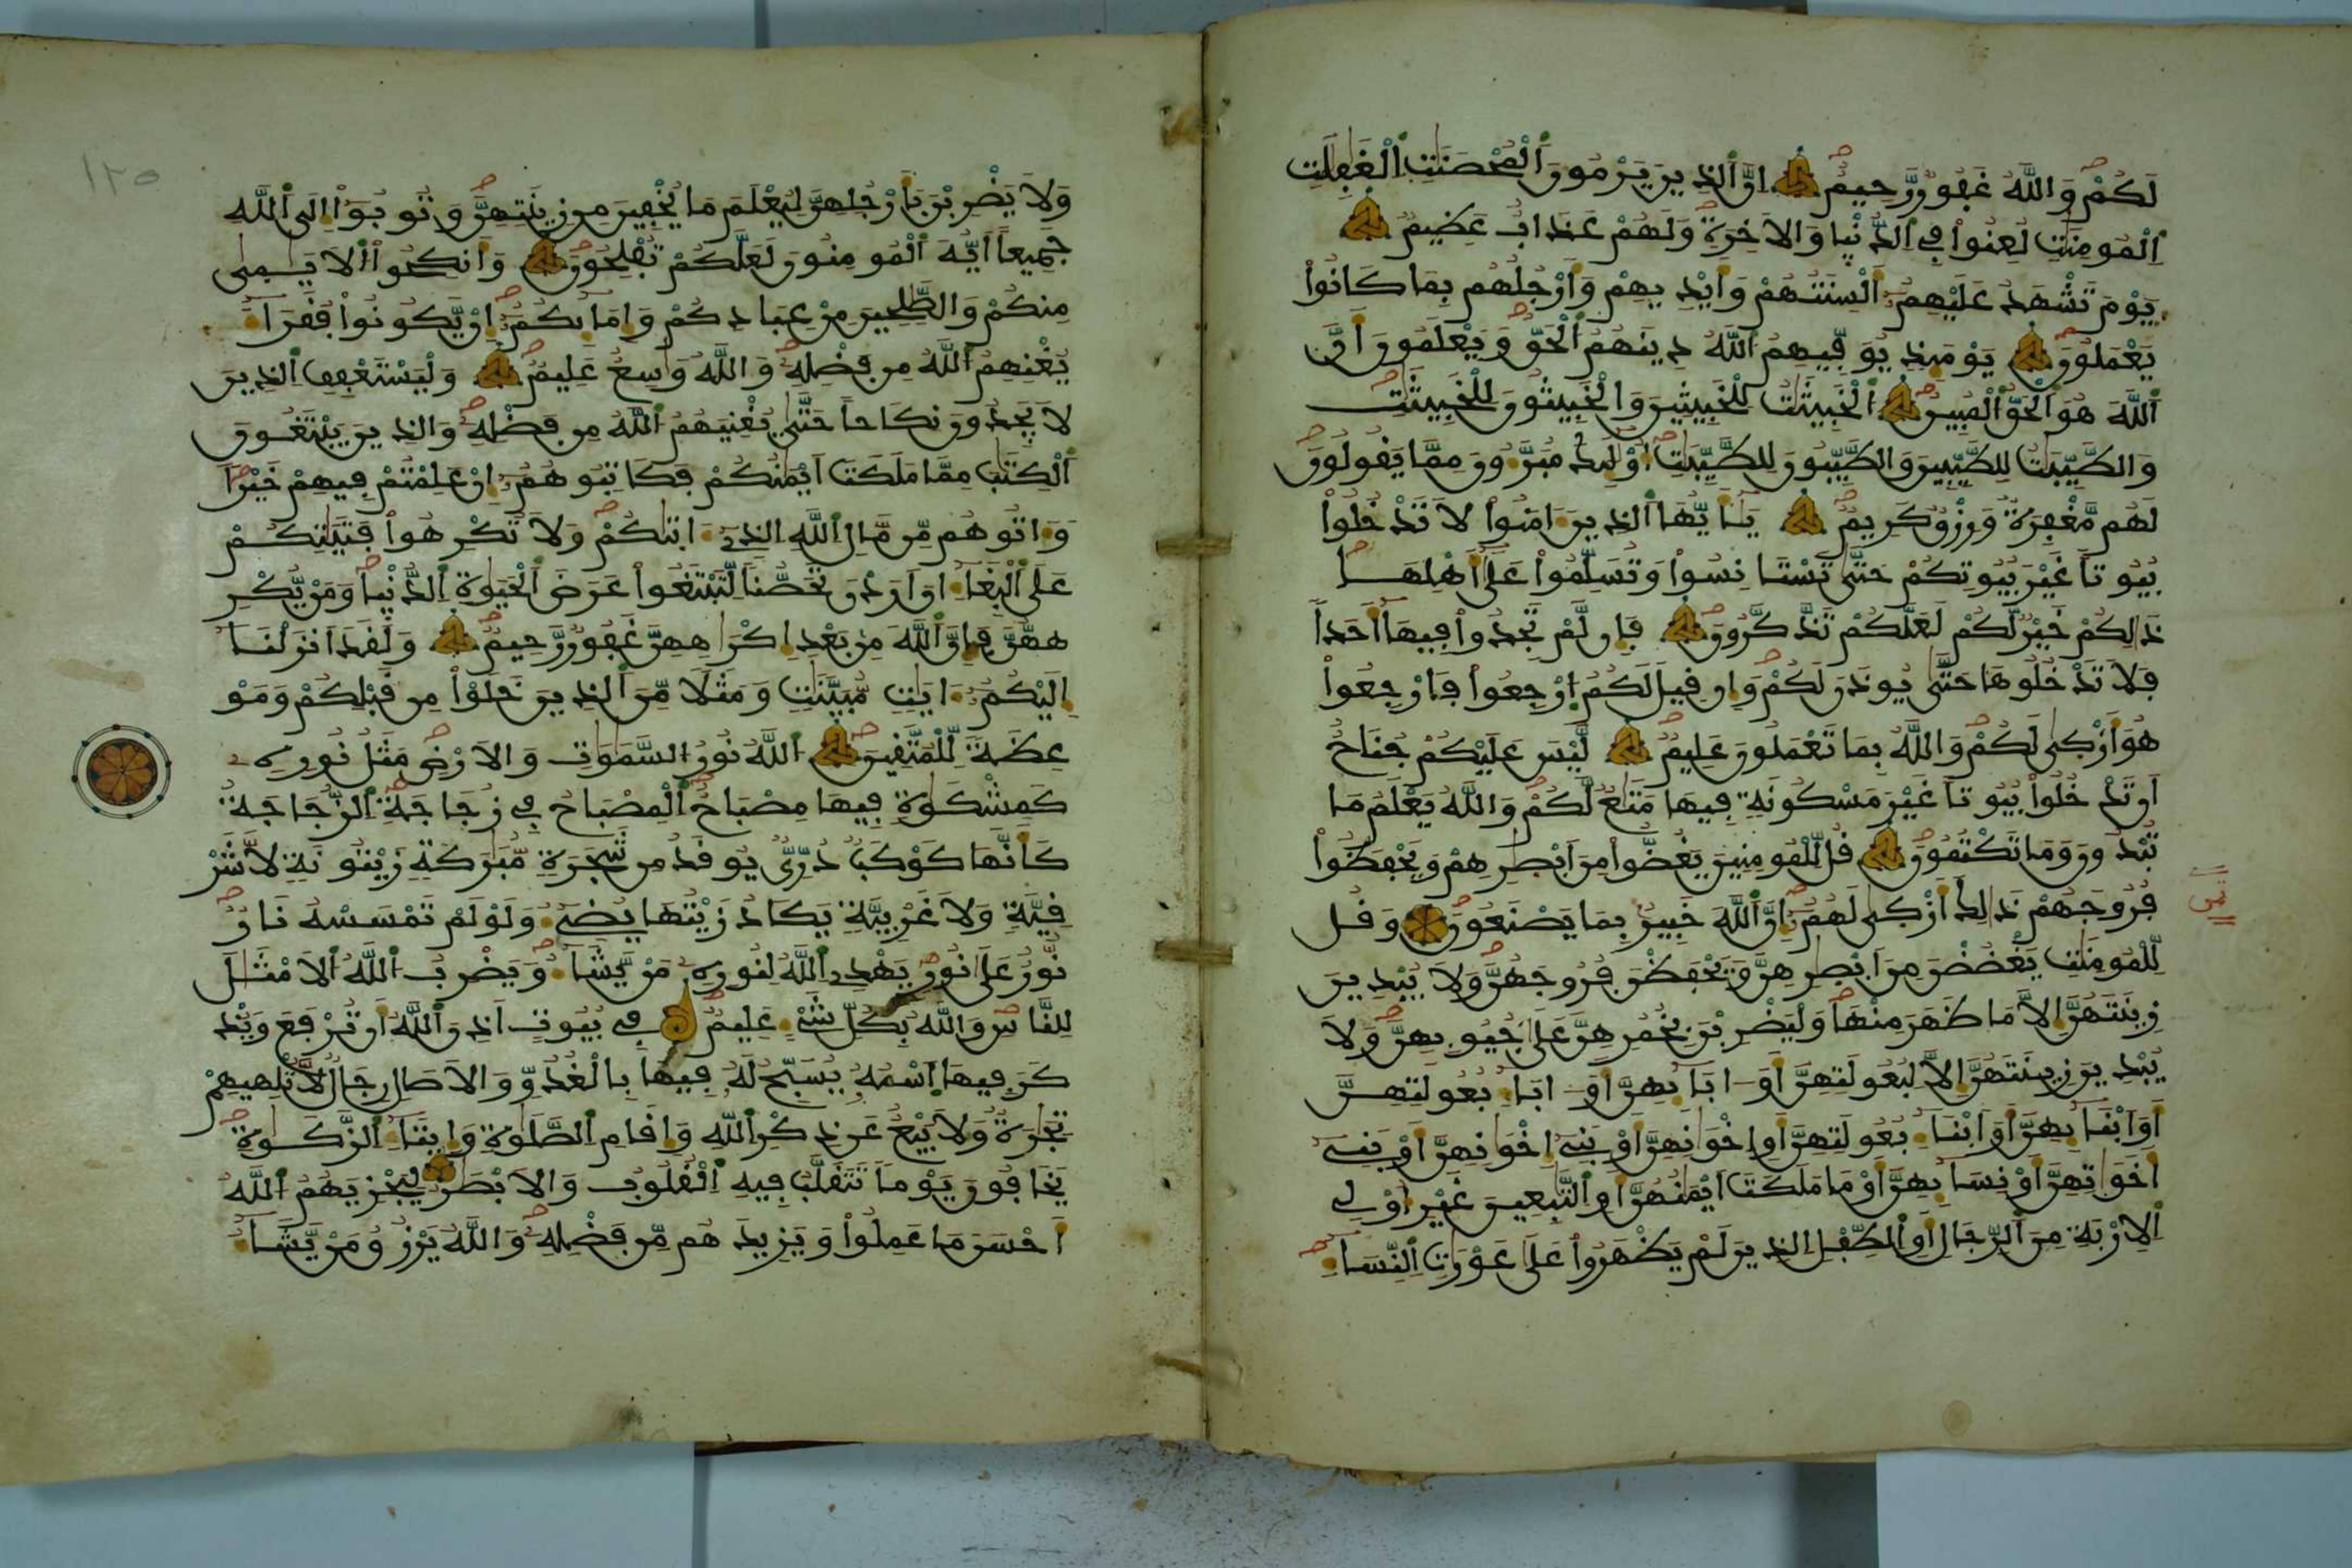 لَكُمْ وَاللَّهُ غَفُورٌ رَّحِيمٌ إِنَّ الذِينَ يَرْمُونَ الْمُحْصَنَٰتِ الْغَٰفِلَٰتِ
الْمُومِنَٰتِ لُعِنُواْ فِي الدُّنْيَا وَالَاخِرَةِ وَلَهُمْ عَذَابٌ عَظِيمٌ
يَوْمَ تَشْهَدُ عَلَيْهِمُ أَلْسِنَتُهُمْ وَأَيْدِيهِمْ وَأَرْجُلُهُم بِمَا كَانُواْ
يَعْمَلُونَ يَوْمَئِذٍ يُوَفِّيهِمُ اللَّهُ دِينَهُمُ الْحَقَّ وَيَعْلَمُونَ أَنَّ
اللَّهَ هُوَ الْحَقُّ الْمُبِينُ الْخَبِيثَٰتُ لِلْخَبِيثِينَ وَالْخَبِيثُونَ لِلْخَبِيثَٰتِ
وَالطَّيِّبَٰتُ لِلطَّيِّبِينَ وَالطَّيِّبُونَ لِلطَّيِّبَٰتِ أُوْلَٰئِكَ مُبَرَّءُونَ مِمَّا يَقُولُونَ
لَهُم مَّغْفِرَةٌ وَرِزْقٌ كَرِيمٌ يَٰأَيُّهَا الذِينَ ءَامَنُواْ لَا تَدْخُلُواْ
بُيُوتًا غَيْرَ بُيُوتِكُمْ حَتَّىٰ تَسْتَانِسُواْ وَتُسَلِّمُواْ عَلَىٰ أَهْلِهَا
ذَٰلِكُمْ خَيْرٌ لَّكُمْ لَعَلَّكُمْ تَذَّكَّرُونَ فَإِن لَّمْ تَجِدُواْ فِيهَا أَحَدًا
فَلَا تَدْخُلُوهَا حَتَّىٰ يُوذَنَ لَكُمْ وَإِن قِيلَ لَكُمُ ارْجِعُواْ فَارْجِعُواْ
هُوَ أَزْكَىٰ لَكُمْ وَاللَّهُ بِمَا تَعْمَلُونَ عَلِيمٌ لَّيْسَ عَلَيْكُمْ جُنَاحٌ
أَن تَدْخُلُواْ بُيُوتًا غَيْرَ مَسْكُونَةٍ فِيهَا مَتَٰعٌ لَّكُمْ وَاللَّهُ يَعْلَمُ مَا
تُبْدُونَ وَمَا تَكْتُمُونَ قُل لِّلْمُومِنِينَ يَغُضُّواْ مِنَ ابْصٰرِهِمْ وَيَحْفَظُواْ
فُرُوجَهُمْ ذَٰلِكَ أَزْكَىٰ لَهُمُ إِنَّ اللَّهَ خَبِيرٌ بِمَا يَصْنَعُونَ وَقُل
لِّلْمُومِنَٰتِ يَغْضُضْنَ مِنَ ابْصٰرِهِنَّ وَيَحْفَظْنَ فُرُوجَهُنَّ وَلَا يُبْدِينَ
زِينَتَهُنَّ إِلَّا مَا ظَهَرَ مِنْهَا وَلْيَضْرِبْنَ بِخُمُرِهِنَّ عَلَىٰ جُيُوبِهِنَّ وَلَا
يُبْدِينَ زِينَتَهُنَّ إِلَّا لِبُعُولَتِهِنَّ أَوَ ابَآئِهِنَّ أَوَ ابَآءِ بُعُولَتِهِنَّ
أَوَ ابْنَآئِهِنَّ أَوَ ابْنَآءِ بُعُولَتِهِنَّ أَوِ اخْوَٰنِهِنَّ أَوْ بَنِي إِخْوَٰنِهِنَّ أَوْ بَنِي
أَخَوَٰتِهِنَّ أَوْ نِسَآئِهِنَّ أَوْ مَا مَلَكَتَ ايْمَٰنُهُنَّ أَوِ التَّٰبِعِينَ غَيْرِ أُوْلِي
الِارْبَةِ مِنَ الرِّجَالِ أَوِ الطِّفْلِ الذِينَ لَمْ يَظْهَرُواْ عَلَىٰ عَوْرَٰتِ النِّسَآءِ
ثمن
١٢٥
وَلَا يَضْرِبْنَ بِأَرْجُلِهِنَّ لِيُعْلَمَ مَا يُخْفِينَ مِن زِينَتِهِنَّ وَتُوبُواْ إِلَى اللَّهِ
جَمِيعًا أَيُّهَ الْمُومِنُونَ لَعَلَّكُمْ تُفْلِحُونَ وَأَنكِحُواْ الَايَٰمَىٰ
مِنكُمْ وَالصَّٰلِحِينَ مِنْ عِبَادِكُمْ وَإِمَآئِكُمُ إِنْ يَّكُونُواْ فُقَرَآءَ
يُغْنِهِمُ اللَّهُ مِن فَضْلِهِ وَاللَّهُ وَٰسِعٌ عَلِيمٌ وَلْيَسْتَعْفِفِ الذِينَ
لَا يَجِدُونَ نِكَاحًا حَتَّىٰ يُغْنِيَهُمُ اللَّهُ مِن فَضْلِهِ وَالذِينَ يَبْتَغُونَ
الْكِتَٰبَ مِمَّا مَلَكَتَ ايْمَٰنُكُمْ فَكَاتِبُوهُمُ إِنْ عَلِمْتُمْ فِيهِمْ خَيْرًا
وَءَاتُوهُم مِّن مَّالِ اللَّهِ الذِي ءَاتَىٰكُمْ وَلَا تُكْرِهُواْ فَتَيَٰتِكُمْ
عَلَى الْبِغَآءِ انَ ارَدْنَ تَحَصُّنًا لِّتَبْتَغُواْ عَرَضَ الْحَيَوٰةِ الدُّنْيَا وَمَنْ يُّكْرِ
ههُّنَّ فَإِنَّ اللَّهَ مِن بَعْدِ إِكْرَٰهِهِنَّ غَفُورٌ رَّحِيمٌ وَلَقَدَ انزَلْنَا
إِلَيْكُمُ ءَايَٰتٍ مُّبَيَّنَٰتٍ وَمَثَلًا مِّنَ الذِينَ خَلَوْاْ مِن قَبْلِكُمْ وَمَوْ
عِظَةً لِّلْمُتَّقِينَ اللَّهُ نُورُ السَّمَٰوَٰتِ وَالَارْضِ مَثَلُ نُورِهِ
كَمِشْكَوٰةٍ فِيهَا مِصْبَاحٌ الْمِصْبَاحُ فِي زُجَاجَةٍ الزُّجَاجَةُ
كَأَنَّهَا كَوْكَبٌ دُرِّيٌّ يُوقَدُ مِن شَجَرَةٍ مُّبَٰرَكَةٍ زَيْتُونَةٍ لَّا شَرْ
قِيَّةٍ وَلَا غَرْبِيَّةٍ يَكَادُ زَيْتُهَا يُضِيءُ وَلَوْ لَمْ تَمْسَسْهُ نَارٌ
نُّورٌ عَلَىٰ نُورٍ يَهْدِي اللَّهُ لِنُورِهِ مَنْ يَّشَآءُ وَيَضْرِبُ اللَّهُ الَامْثَٰلَ
لِلنَّاسِ وَاللَّهُ بِكُلِّ شَيْءٍ عَلِيمٌ فِي بُيُوتٍ أَذِنَ اللَّهُ أَن تُرْفَعَ وَيُذْ
كَرَ فِيهَا اسْمُهُ يُسَبِّحُ لَهُ فِيهَا بِالْغُدُوِّ وَالَاصَالِ رِجَالٌ لَّا تُلْهِيهِمْ
تِجَٰرَةٌ وَلَا بَيْعٌ عَن ذِكْرِ اللَّهِ وَإِقَامِ الصَّلَوٰةِ وَإِيتَآءِ الزَّكَوٰةِ
يَخَافُونَ يَوْمًا تَتَقَلَّبُ فِيهِ الْقُلُوبُ وَالَابْصَٰرُ لِيَجْزِيَهُمُ اللَّهُ
أَحْسَنَ مَا عَمِلُواْ وَيَزِيدَهُم مِّن فَضْلِهِ وَاللَّهُ يَرْزُقُ مَنْ يَّشَآءُ